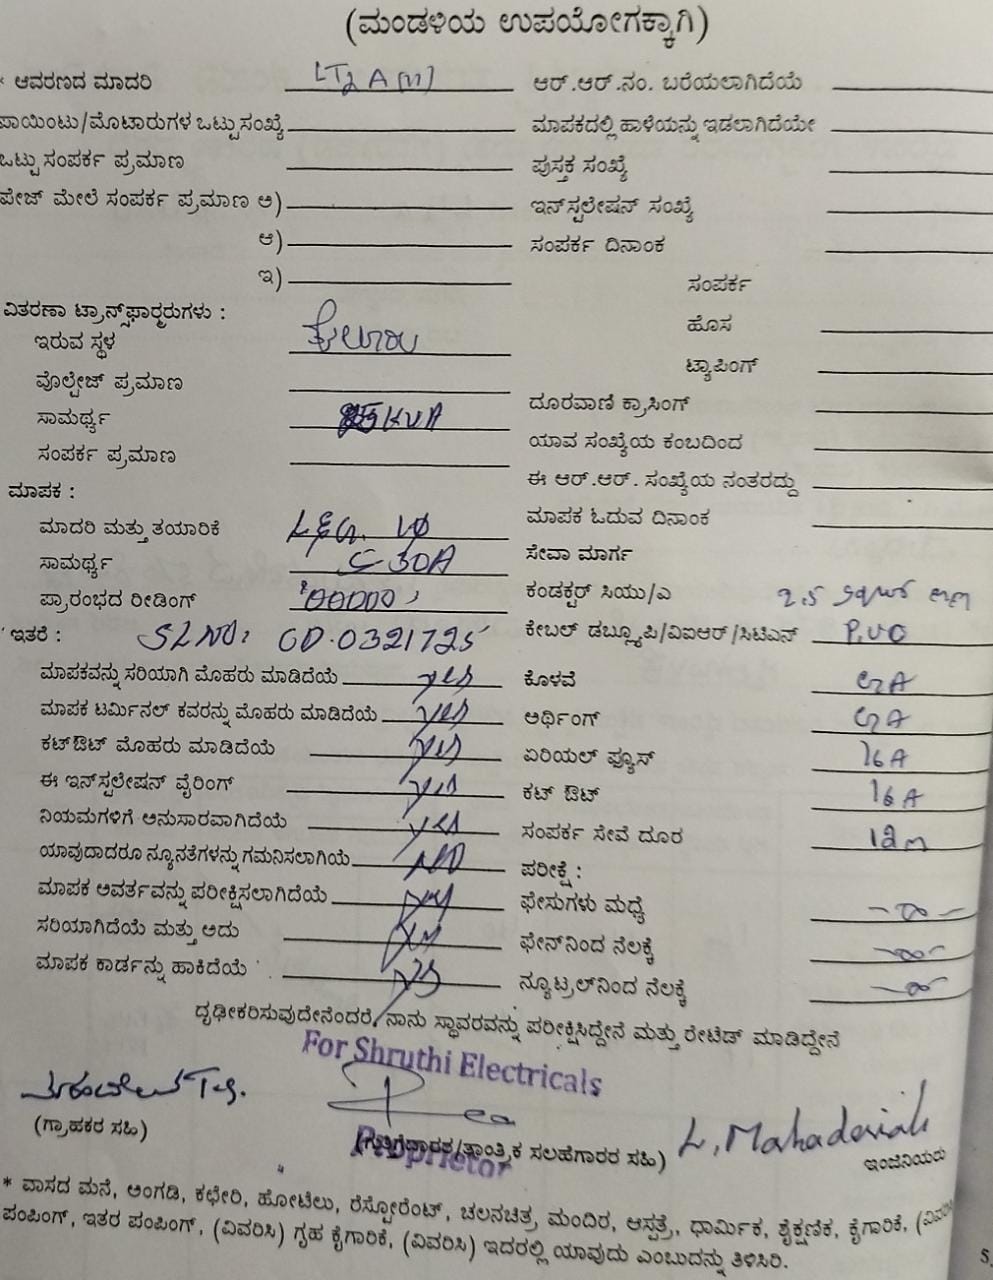 (ಮಂಡಳಿಯ ಉಪಯೋಗಕ್ಕಾಗಿ)
* ಆವರಣದ ಮಾದರಿ LT2 A (ii) ಆರ್.ಆರ್.ನಂ. ಬರೆಯಲಾಗಿದೆಯೆ
ಪಾಯಿಂಟು/ಮೊಟಾರುಗಳ ಒಟ್ಟುಸಂಖ್ಯೆ ಮಾಪಕದಲ್ಲಿ ಹಾಳೆಯನ್ನು ಇಡಲಾಗಿದೆಯೇ
ಒಟ್ಟು ಸಂಪರ್ಕ ಪ್ರಮಾಣ ಪುಸ್ತಕ ಸಂಖ್ಯೆ
ಪೇಜ್ ಮೇಲೆ ಸಂಪರ್ಕ ಪ್ರಮಾಣ ಅ) ಇನ್‌ಸ್ಟಲೇಷನ್ ಸಂಖ್ಯೆ
ಆ) ಸಂಪರ್ಕ ದಿನಾಂಕ
ಇ) ಸಂಪರ್ಕ
ವಿತರಣಾ ಟ್ರಾನ್ಸ್‌ಫಾರ್ಮರುಗಳು : ಹೊಸ
ಇರುವ ಸ್ಥಳ
ಟ್ಯಾಪಿಂಗ್
ವೊಲ್ಟೇಜ್ ಪ್ರಮಾಣ
ಸಾಮರ್ಥ್ಯ KVA ದೂರವಾಣಿ ಕ್ರಾಸಿಂಗ್
ಸಂಪರ್ಕ ಪ್ರಮಾಣ ಯಾವ ಸಂಖ್ಯೆಯ ಕಂಬದಿಂದ
ಮಾಪಕ : ಈ ಆರ್.ಆರ್. ಸಂಖ್ಯೆಯ ನಂತರದ್ದು
ಮಾದರಿ ಮತ್ತು ತಯಾರಿಕೆ L&G. 1Φ ಮಾಪಕ ಓದುವ ದಿನಾಂಕ
ಸಾಮರ್ಥ್ಯ 5-30A ಸೇವಾ ಮಾರ್ಗ
ಪ್ರಾರಂಭದ ರೀಡಿಂಗ್ '00000' ಕಂಡಕ್ಟರ್ ಸಿಯು/ಎ 2.5
ಇತರೆ : SL NO: 0D.0321725 ಕೇಬಲ್ ಡಬ್ಲ್ಯೂಪಿ/ವಿಐಆರ್/ಸಿಟಿಎಸ್ P.V.C
ಮಾಪಕವನ್ನು ಸರಿಯಾಗಿ ಮೊಹರು ಮಾಡಿದೆಯೆ yes ಕೊಳವೆ GA
ಮಾಪಕ ಟರ್ಮಿನಲ್ ಕವರನ್ನು ಮೊಹರು ಮಾಡಿದೆಯೆ yes ಅರ್ಥಿಂಗ್ GA
ಕಟ್‌ಔಟ್ ಮೊಹರು ಮಾಡಿದೆಯೆ yes ಏರಿಯಲ್ ಫ್ಯೂಸ್ 16A
ಈ ಇನ್‌ಸ್ಟಲೇಷನ್ ವೈರಿಂಗ್ yes ಕಟ್ ಔಟ್ 16A
ನಿಯಮಗಳಿಗೆ ಅನುಸಾರವಾಗಿದೆಯೆ yes ಸಂಪರ್ಕ ಸೇವೆ ದೂರ 12m
ಯಾವುದಾದರೂ ನ್ಯೂನತೆಗಳನ್ನು ಗಮನಿಸಲಾಗಿಯೆ NO ಪರೀಕ್ಷೆ :
ಮಾಪಕ ಅವರ್ತವನ್ನು ಪರೀಕ್ಷಿಸಲಾಗಿದೆಯೆ yes ಫೇಸುಗಳು ಮಧ್ಯೆ -∞-
ಸರಿಯಾಗಿದೆಯೆ ಮತ್ತು ಅದು yes ಫೇಸ್‌ನಿಂದ ನೆಲಕ್ಕೆ -∞-
ಮಾಪಕ ಕಾರ್ಡನ್ನು ಹಾಕಿದೆಯೆ yes ನ್ಯೂಟ್ರಲ್‌ನಿಂದ ನೆಲಕ್ಕೆ -∞-
ದೃಢೀಕರಿಸುವುದೇನೆಂದರೆ, ನಾನು ಸ್ಥಾವರವನ್ನು ಪರೀಕ್ಷಿಸಿದ್ದೇನೆ ಮತ್ತು ರೇಟೆಡ್ ಮಾಡಿದ್ದೇನೆ
For Shruthi Electricals
L. Mahadevaiah
(ಗ್ರಾಹಕರ ಸಹಿ) (ಗುತ್ತಿಗೆದಾರರ/ತಾಂತ್ರಿಕ ಸಲಹೆಗಾರರ ಸಹಿ) ಇಂಜಿನಿಯರು
Proprietor
* ವಾಸದ ಮನೆ, ಅಂಗಡಿ, ಕಛೇರಿ, ಹೋಟೆಲು, ರೆಸ್ಟೋರೆಂಟ್, ಚಲನಚಿತ್ರ ಮಂದಿರ, ಆಸ್ಪತ್ರೆ, ಧಾರ್ಮಿಕ, ಶೈಕ್ಷಣಿಕ, ಕೈಗಾರಿಕೆ, (ವಿವರಿಸಿ
ಪಂಪಿಂಗ್, ಇತರ ಪಂಪಿಂಗ್, (ವಿವರಿಸಿ) ಗೃಹ ಕೈಗಾರಿಕೆ, (ವಿವರಿಸಿ) ಇದರಲ್ಲಿ ಯಾವುದು ಎಂಬುದನ್ನು ತಿಳಿಸಿರಿ.